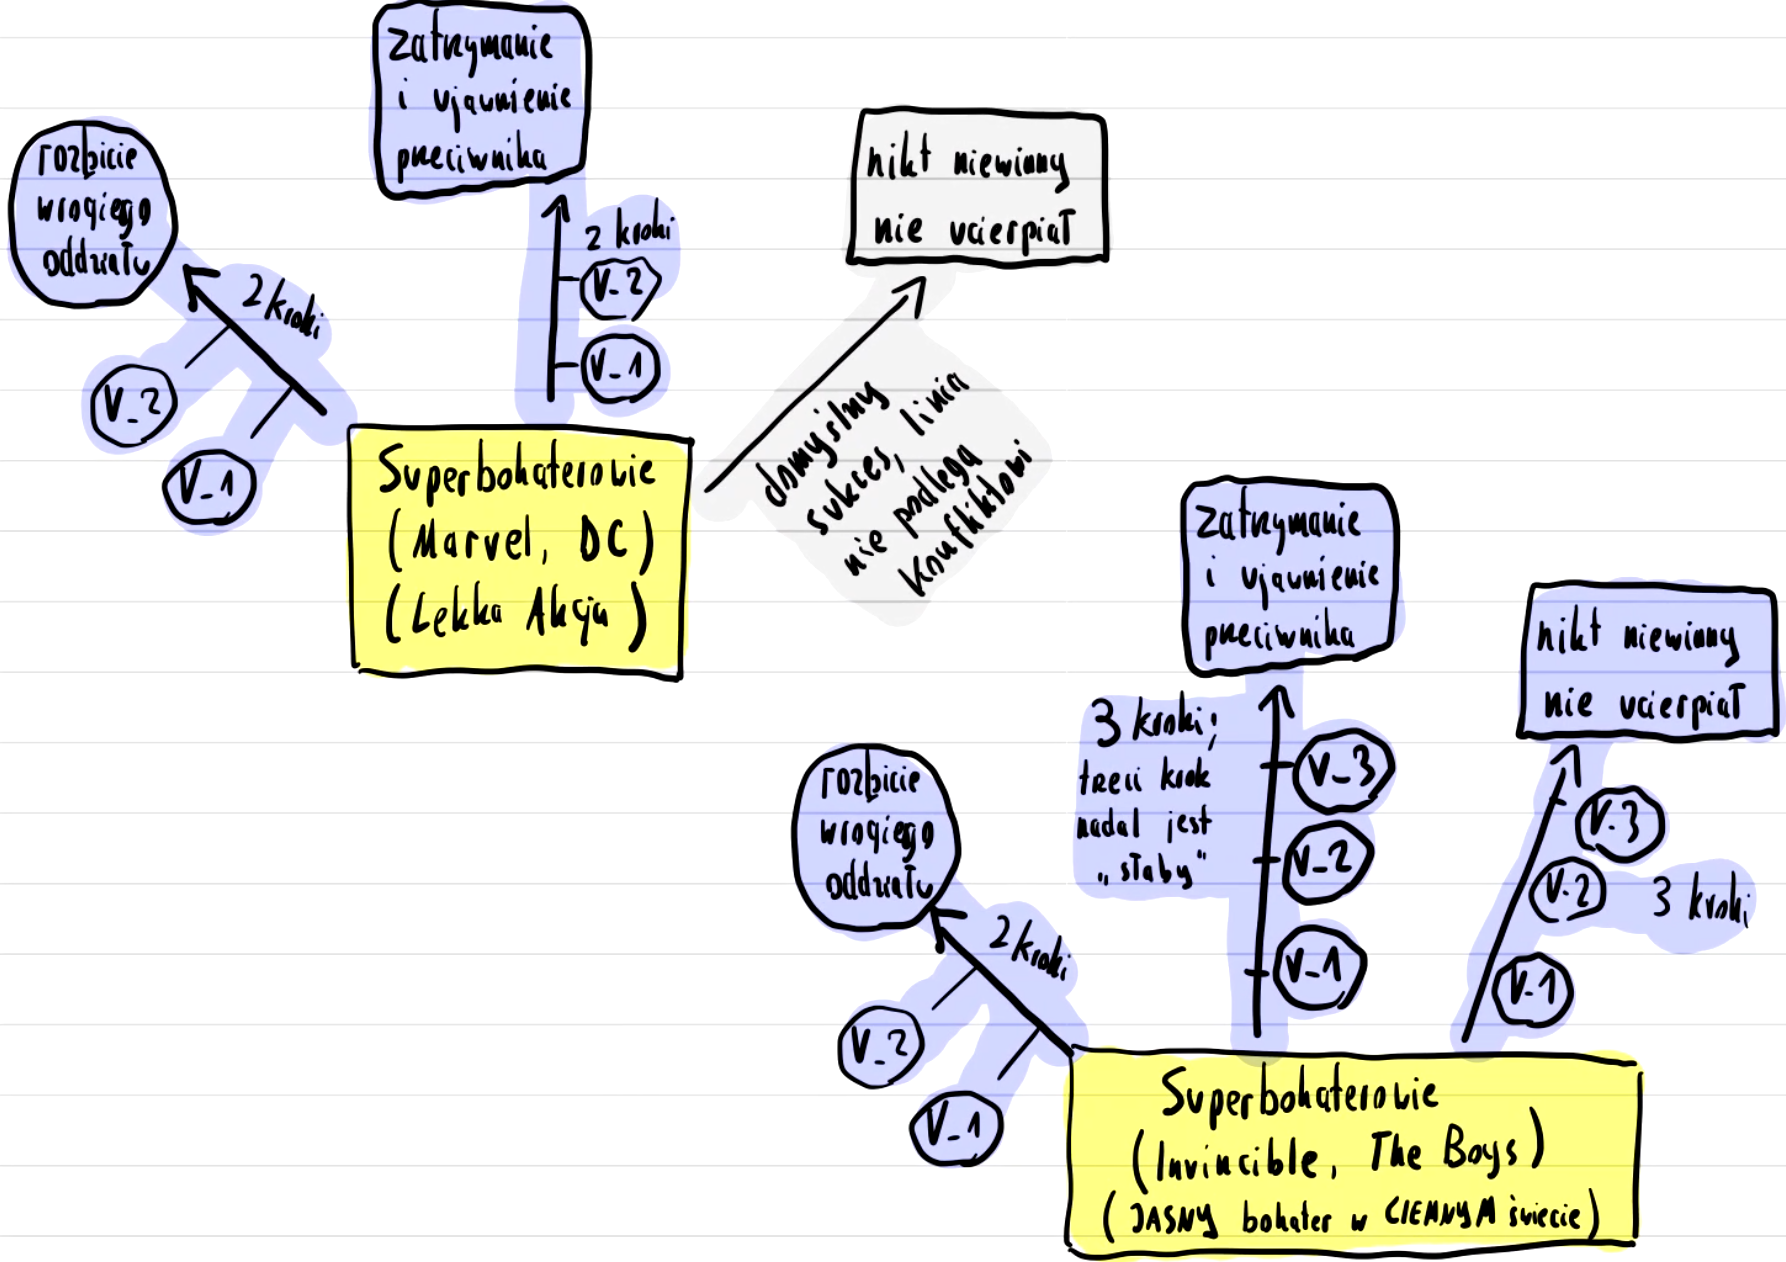 zatrzymanie
i ujawnienie
przeciwnika
rozbicie
wrogiego
oddziału
2 kroki
V_2
V_1
2 kroki
V_2
V_1
nikt niewinny
nie ucierpiał
domyślny
sukces, linia
nie podlega
konfliktowi
Superbohaterowie
(Marvel, DC)
(Lekka Akcja)
zatrzymanie
i ujawnienie
przeciwnika
3 kroki;
trzeci krok
nadal jest
„słaby"
V_3
V_2
V_1
nikt niewinny
nie ucierpiał
V_3
V_2
3 kroki
V_1
rozbicie
wrogiego
oddziału
2 kroki
V_2
V_1
Superbohaterowie
(Invincible, The Boys)
(JASNY bohater w CIEMNYM świecie)